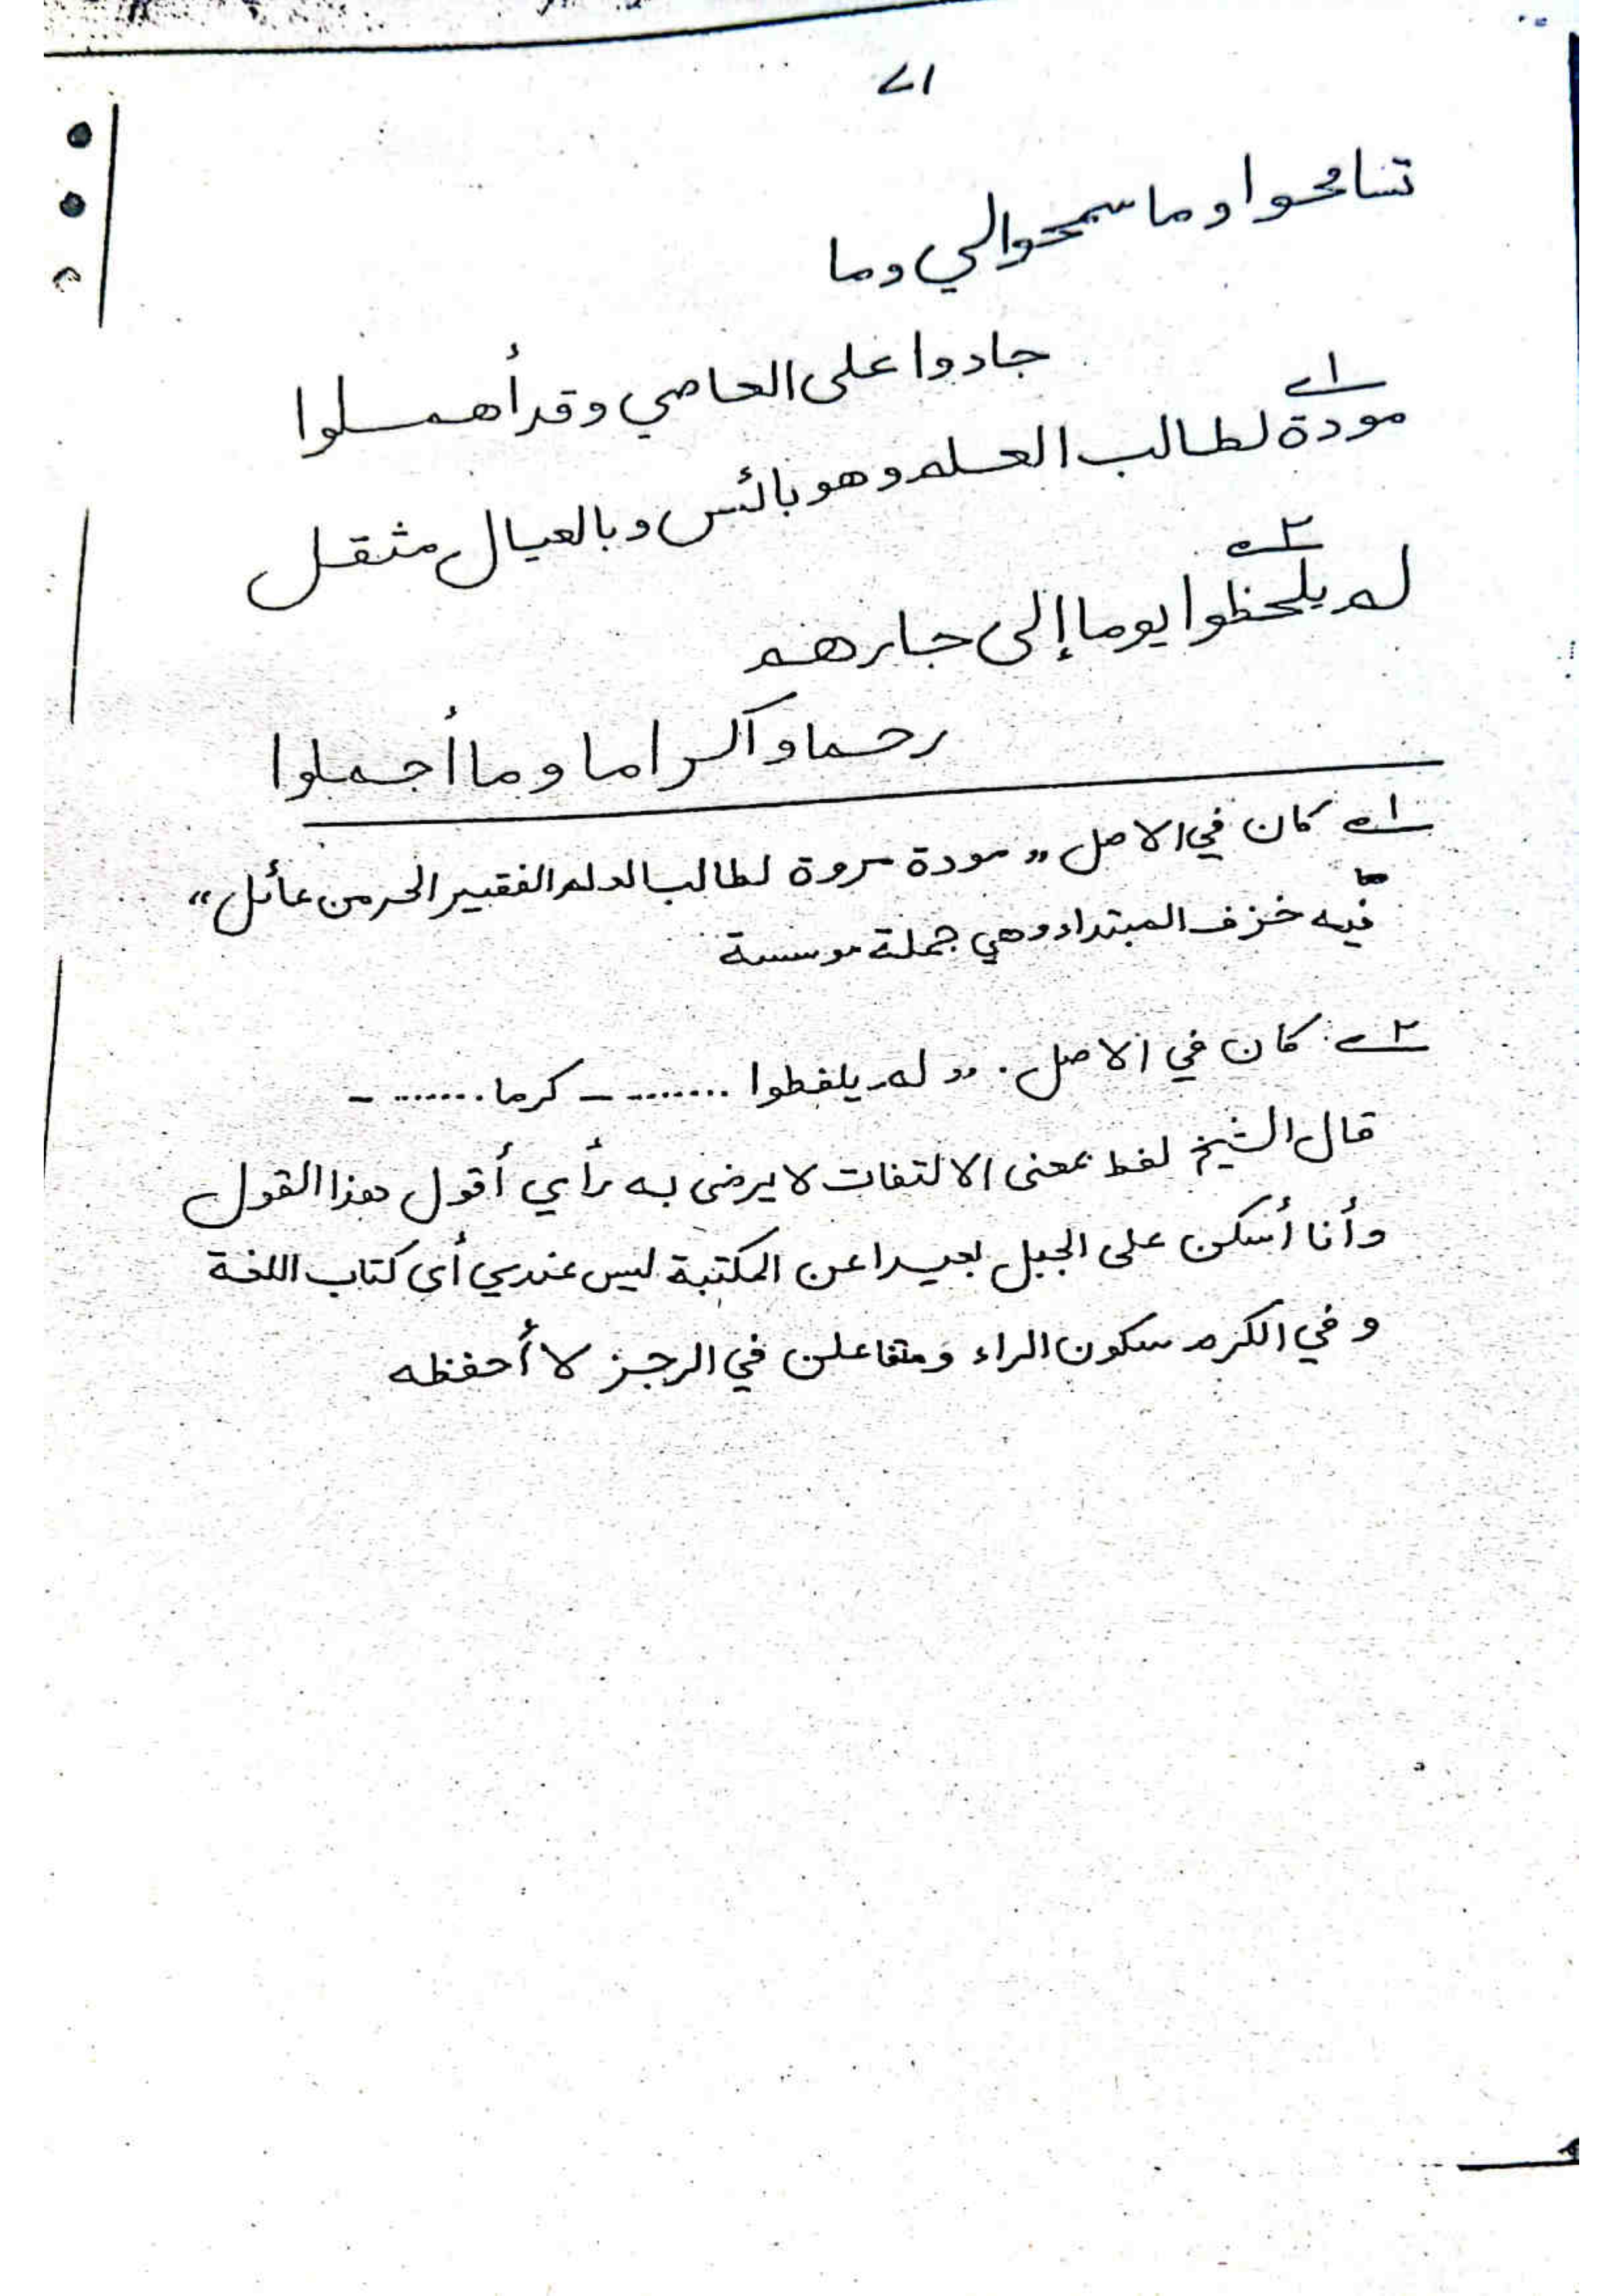 تسامحوا وما سمحوا لي وما
جادوا على العاصي وقد أهملوا
١ـ
مودة لطالب العلم وهو بائس وبالعيال مثقل
٢ـ
لم يلحظوا يوما إلى جارهم
رحما وآكراما وما أجملوا
١ـ كان في الاصل „ مودة مروة لطالب العلم الفقير الحر من عائل “
فيه خزف المبتداء وهي جملة موسسة
٢ـ كان في الاصل . „ لم يلفظوا ........ ـ كرما ....... ـ
قال الشيخ لفظ بمعنى الالتفات لا يرضى به رأي أقول هذا القول
وأنا أسكن على الجبل بعيدا عن المكتبة ليس عندي أى كتاب اللغة
و في الكرم سكون الراء ومتفاعلن في الرجز لا أحفظه